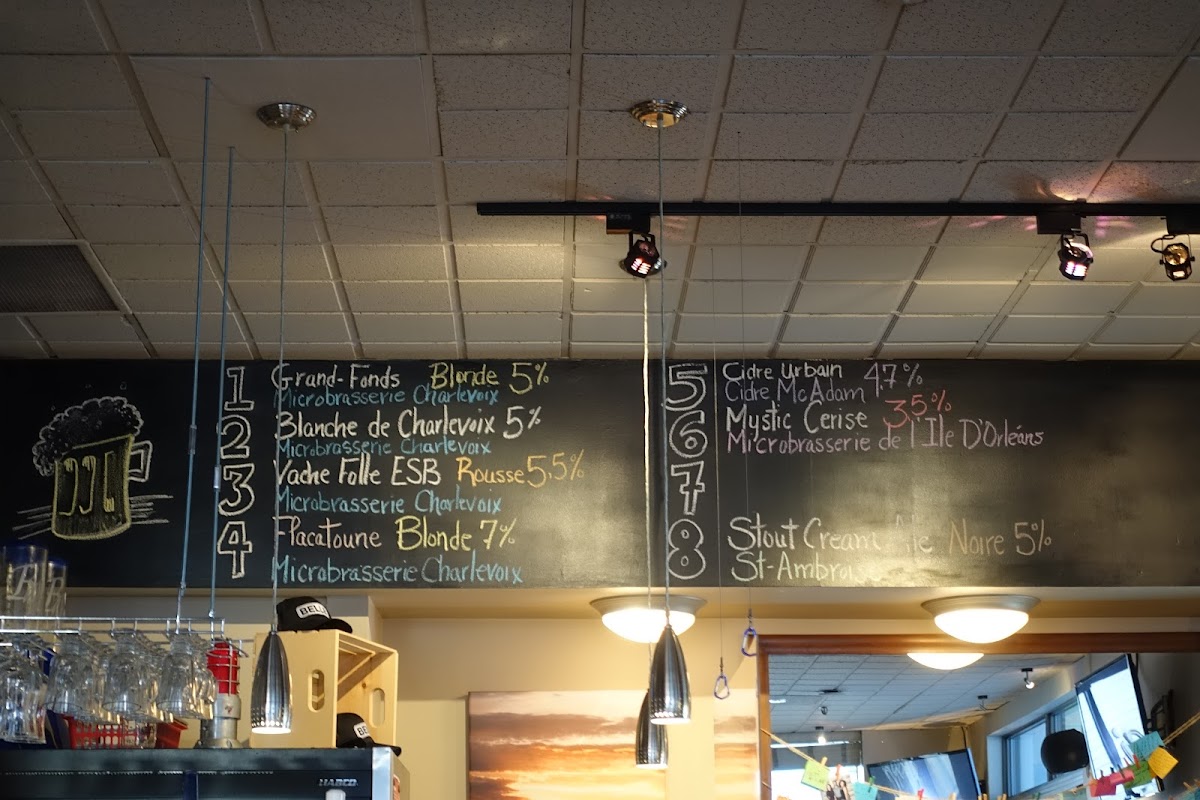 1 Grand-Fonds Blonde 5%
Microbrasserie Charlevoix
2 Blanche de Charlevoix 5%
Microbrasserie Charlevoix
3 Vache Folle ESB Rousse 5,5%
Microbrasserie Charlevoix
4 Flacatoune Blonde 7%
Microbrasserie Charlevoix
5 Cidre Urbain 4.7%
Cidre McAdam
6 Mystic Cerise 3.5%
Microbrasserie de l'Ile D'Orléans
7
8 Stout Cream Ale Noire 5%
St-Ambroise
HABCO